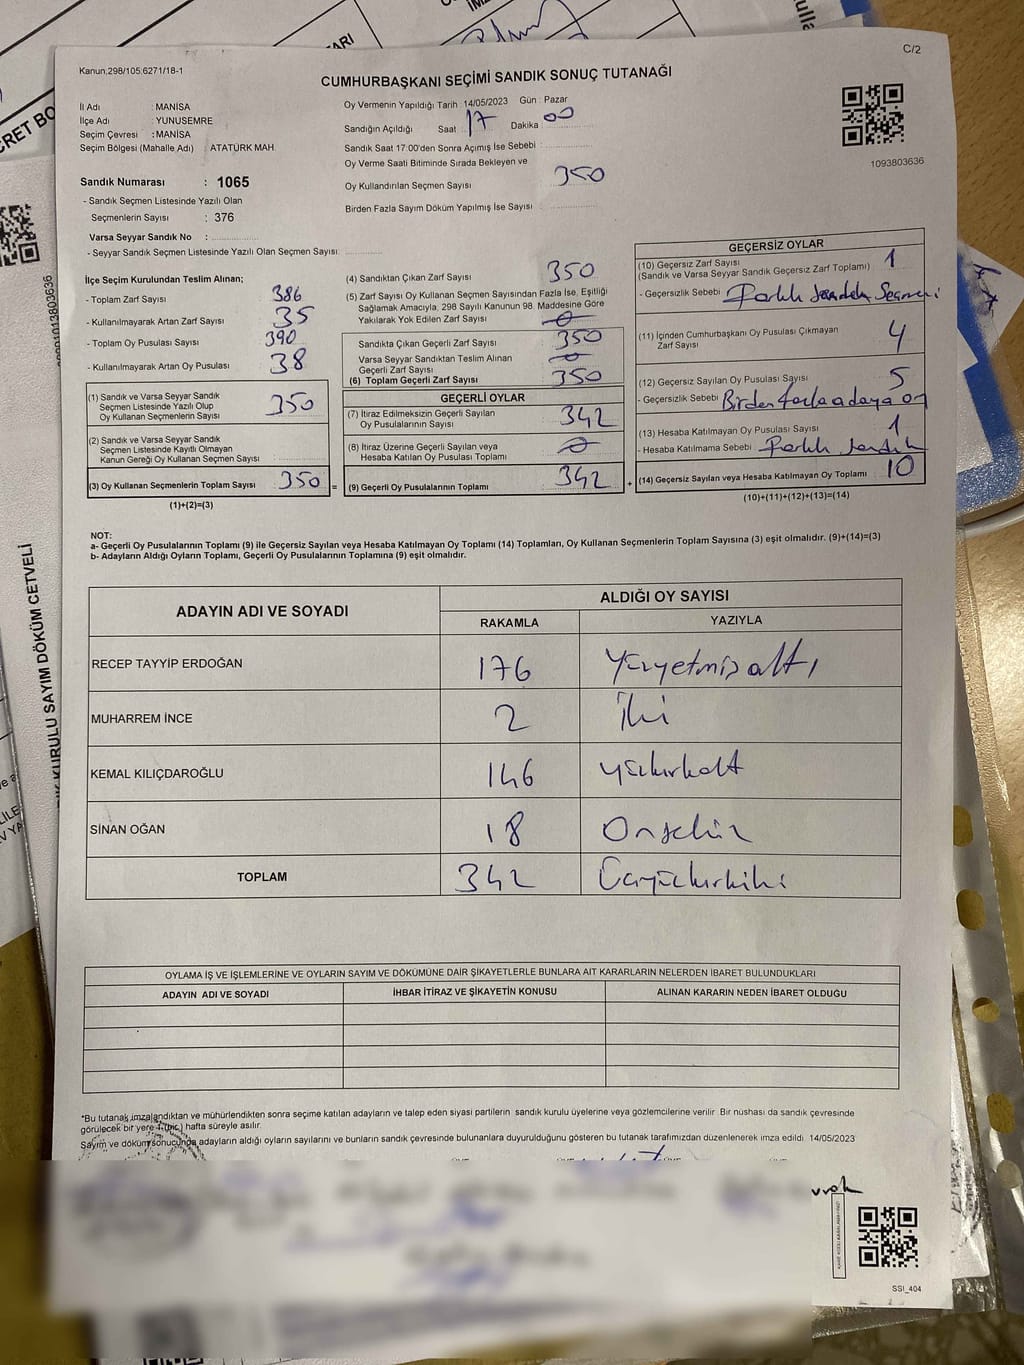 C/2
Kanun;298/105;6271/18-1
CUMHURBAŞKANI SEÇİMİ SANDIK SONUÇ TUTANAĞI
İl Adı : MANİSA
İlçe Adı : YUNUSEMRE
Seçim Çevresi : MANİSA
Seçim Bölgesi (Mahalle Adı) : ATATÜRK MAH.
Sandık Numarası : 1065
- Sandık Seçmen Listesinde Yazılı Olan
Seçmenlerin Sayısı : 376
Varsa Seyyar Sandık No :
- Seyyar Sandık Seçmen Listesinde Yazılı Olan Seçmen Sayısı:
Oy Vermenin Yapıldığı Tarih : 14/05/2023 Gün : Pazar
Sandığın Açıldığı Saat : 17 Dakika : 00
Sandık Saat 17:00'den Sonra Açımış İse Sebebi :
Oy Verme Saati Bitiminde Sırada Bekleyen ve
Oy Kullandırılan Seçmen Sayısı : 350
Birden Fazla Sayım Döküm Yapılmış İse Sayısı :
1093803636
İlçe Seçim Kurulundan Teslim Alınan;
- Toplam Zarf Sayısı : 386
- Kullanılmayarak Artan Zarf Sayısı : 35
- Toplam Oy Pusulası Sayısı : 390
- Kullanılmayarak Artan Oy Pusulası : 38
(1) Sandık ve Varsa Seyyar Sandık
Seçmen Listesinde Yazılı Olup
Oy Kullanan Seçmenlerin Sayısı : 350
(2) Sandık ve Varsa Seyyar Sandık
Seçmen Listesinde Kayıtlı Olmayan
Kanun Gereği Oy Kullanan Seçmen Sayısı :
(3) Oy Kullanan Seçmenlerin Toplam Sayısı : 350
(1)+(2)=(3)
(4) Sandıktan Çıkan Zarf Sayısı : 350
(5) Zarf Sayısı Oy Kullanan Seçmen Sayısından Fazla İse, Eşitliği
Sağlamak Amacıyla, 298 Sayılı Kanunun 98. Maddesine Göre
Yakılarak Yok Edilen Zarf Sayısı : 0
Sandıkta Çıkan Geçerli Zarf Sayısı : 350
Varsa Seyyar Sandıktan Teslim Alınan
Geçerli Zarf Sayısı : 0
(6) Toplam Geçerli Zarf Sayısı : 350
GEÇERLİ OYLAR
(7) İtiraz Edilmeksizin Geçerli Sayılan
Oy Pusulalarının Sayısı : 342
(8) İtiraz Üzerine Geçerli Sayılan veya
Hesaba Katılan Oy Pusulası Toplamı : 0
= (9) Geçerli Oy Pusulalarının Toplamı : 342
GEÇERSİZ OYLAR
(10) Geçersiz Zarf Sayısı : 1
(Sandık ve Varsa Seyyar Sandık Geçersiz Zarf Toplamı)
- Geçersizlik Sebebi : Farklı Sandık Seçmeni
(11) İçinden Cumhurbaşkanı Oy Pusulası Çıkmayan
Zarf Sayısı : 4
(12) Geçersiz Sayılan Oy Pusulası Sayısı : 5
- Geçersizlik Sebebi : Birden fazla adaya oy
(13) Hesaba Katılmayan Oy Pusulası Sayısı : 1
- Hesaba Katılmama Sebebi : Farklı sandık
+ (14) Geçersiz Sayılan veya Hesaba Katılmayan Oy Toplamı : 10
(10)+(11)+(12)+(13)=(14)
NOT:
a- Geçerli Oy Pusulalarının Toplamı (9) ile Geçersiz Sayılan veya Hesaba Katılmayan Oy Toplamı (14) Toplamları, Oy Kullanan Seçmenlerin Toplam Sayısına (3) eşit olmalıdır. (9)+(14)=(3)
b- Adayların Aldığı Oyların Toplamı, Geçerli Oy Pusulalarının Toplamına (9) eşit olmalıdır.
ADAYIN ADI VE SOYADI
ALDIĞI OY SAYISI
RAKAMLA YAZIYLA
RECEP TAYYİP ERDOĞAN 176 Yüzyetmiş altı
MUHARREM İNCE 2 İki
KEMAL KILIÇDAROĞLU 146 yüzkırkaltı
SİNAN OĞAN 18 Onsekiz
TOPLAM 342 Üçyüzkırkiki
OYLAMA İŞ VE İŞLEMLERİNE VE OYLARIN SAYIM VE DÖKÜMÜNE DAİR ŞİKAYETLERLE BUNLARA AİT KARARLARIN NELERDEN İBARET BULUNDUKLARI
ADAYIN ADI VE SOYADI İHBAR İTİRAZ VE ŞİKAYETİN KONUSU ALINAN KARARIN NEDEN İBARET OLDUĞU
*Bu tutanak imzalandıktan ve mühürlendikten sonra seçime katılan adayların ve talep eden siyasi partilerin sandık kurulu üyelerine veya gözlemcilerine verilir. Bir nüshası da sandık çevresinde
görülecek bir yere hafta süreyle asılır.
Sayım ve döküm sonucunda adayların aldığı oyların sayılarını ve bunların sandık çevresinde bulunanlara duyurulduğunu gösteren bu tutanak tarafımızdan düzenlenerek imza edildi. 14/05/2023
SSI_404
KURULU SAYIM DÖKÜM CETVELİ